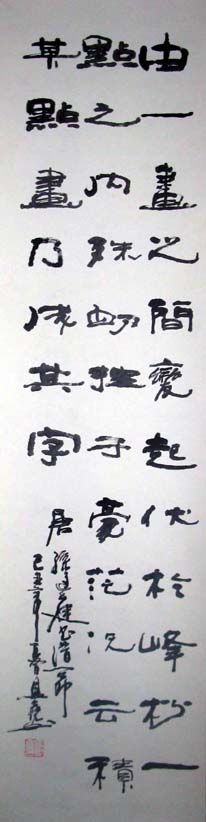 由一畫之間變起伏於峰杪一
點之內殊衄挫于豪茫況云積
其點畫乃成其字
唐孫過庭書譜一節
己丑年夏